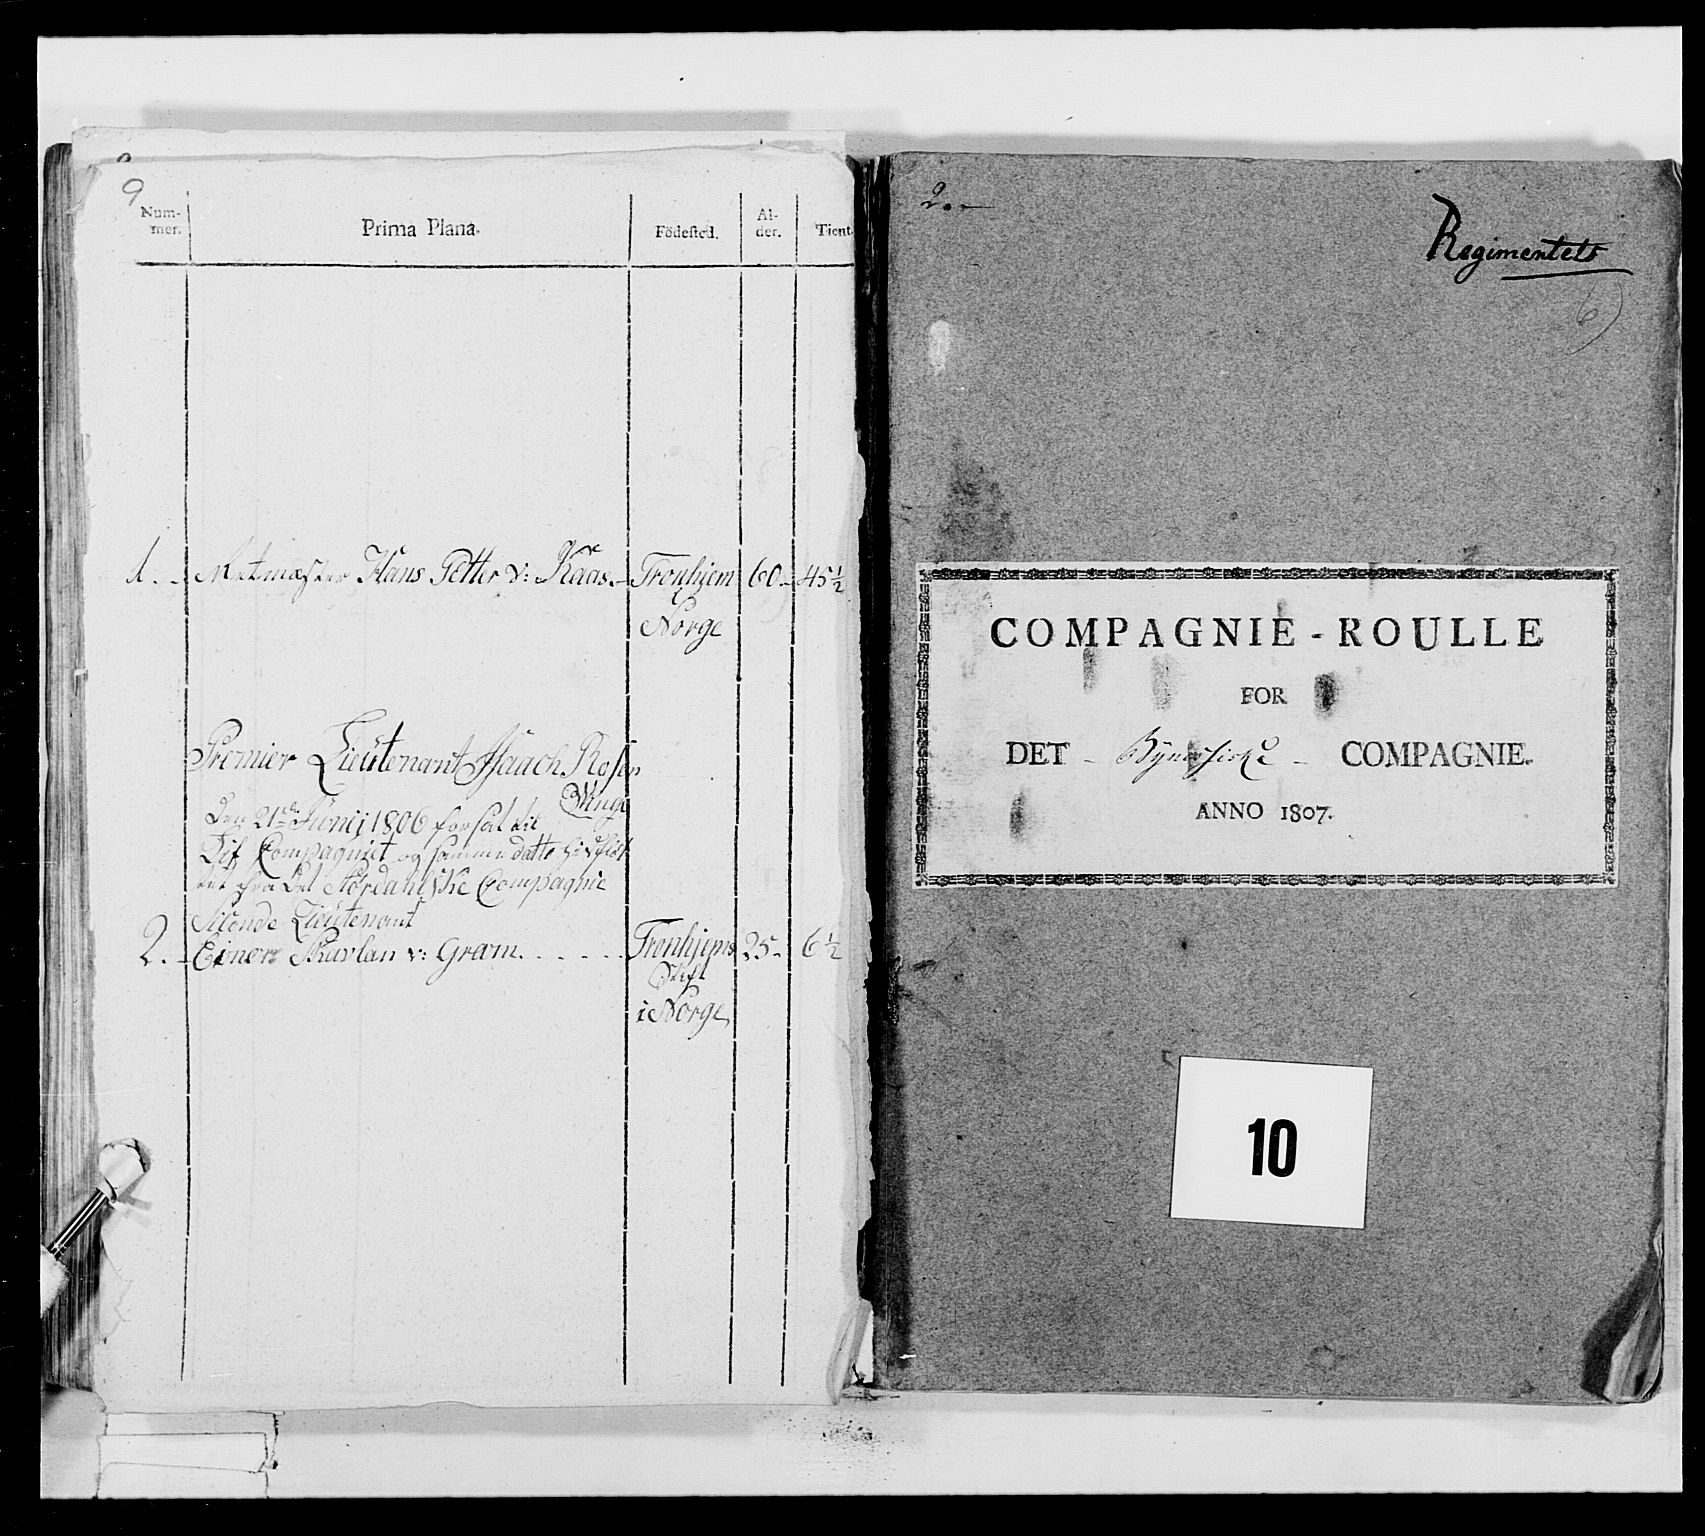 9
Num-
mer.
Prima Plana.
Födested.
Al-
der.
Tient.
1. - Ritmæster Hans Petter v: Kaas. - Tronhjem 60- 45½
i Norge
Premier Lieutenant Isaach Rosen
Vinge
Den 21de Junij 1806 forsat til
Lif Compagniet og samme datto
det fra det Nordahlske Compagnie
Seconde Lieutenant
2. - Einer v: Gram. . . . . . . Tronhjems 25- 6½
Stift
i Norge
2.-
Regimentets
6)
COMPAGNIE-ROULLE
FOR
DET - Bynesiske - COMPAGNIE.
ANNO 1807.
10